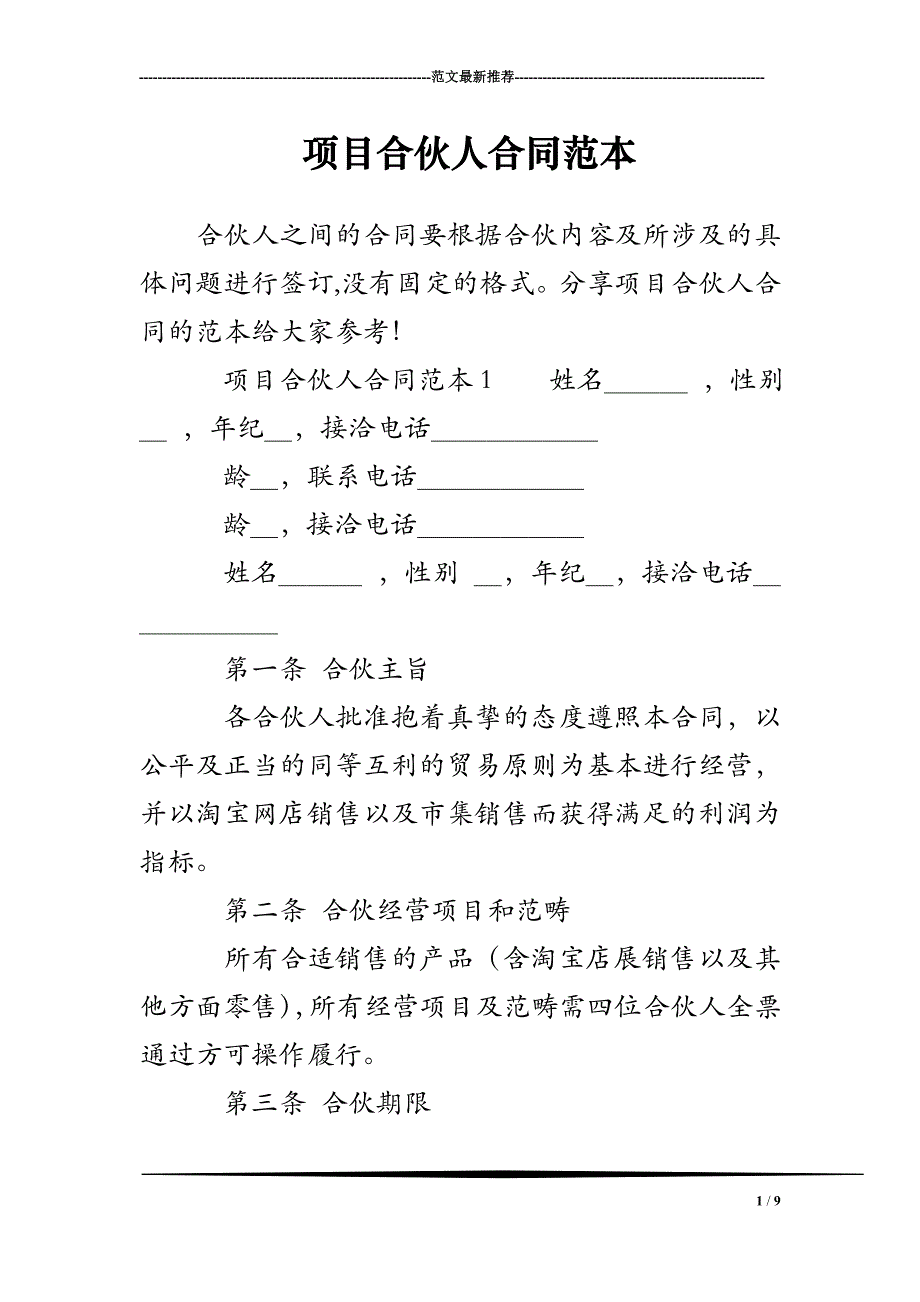 ---------------------------------------------------------------范文最新推荐------------------------------------------------------
项目合伙人合同范本
合伙人之间的合同要根据合伙内容及所涉及的具
体问题进行签订,没有固定的格式。分享项目合伙人合
同的范本给大家参考!
项目合伙人合同范本1 姓名______ ，性别
__ ，年纪__，接洽电话____________
龄__，联系电话____________
龄__，接洽电话____________
姓名______ ，性别 __，年纪__，接洽电话__
__________
第一条 合伙主旨
各合伙人批准抱着真挚的态度遵照本合同，以
公平及正当的同等互利的贸易原则为基本进行经营，
并以淘宝网店销售以及市集销售而获得满足的利润为
指标。
第二条 合伙经营项目和范畴
所有合适销售的产品（含淘宝店展销售以及其
他方面零售），所有经营项目及范畴需四位合伙人全票
通过方可操作履行。
第三条 合伙期限
1 / 9